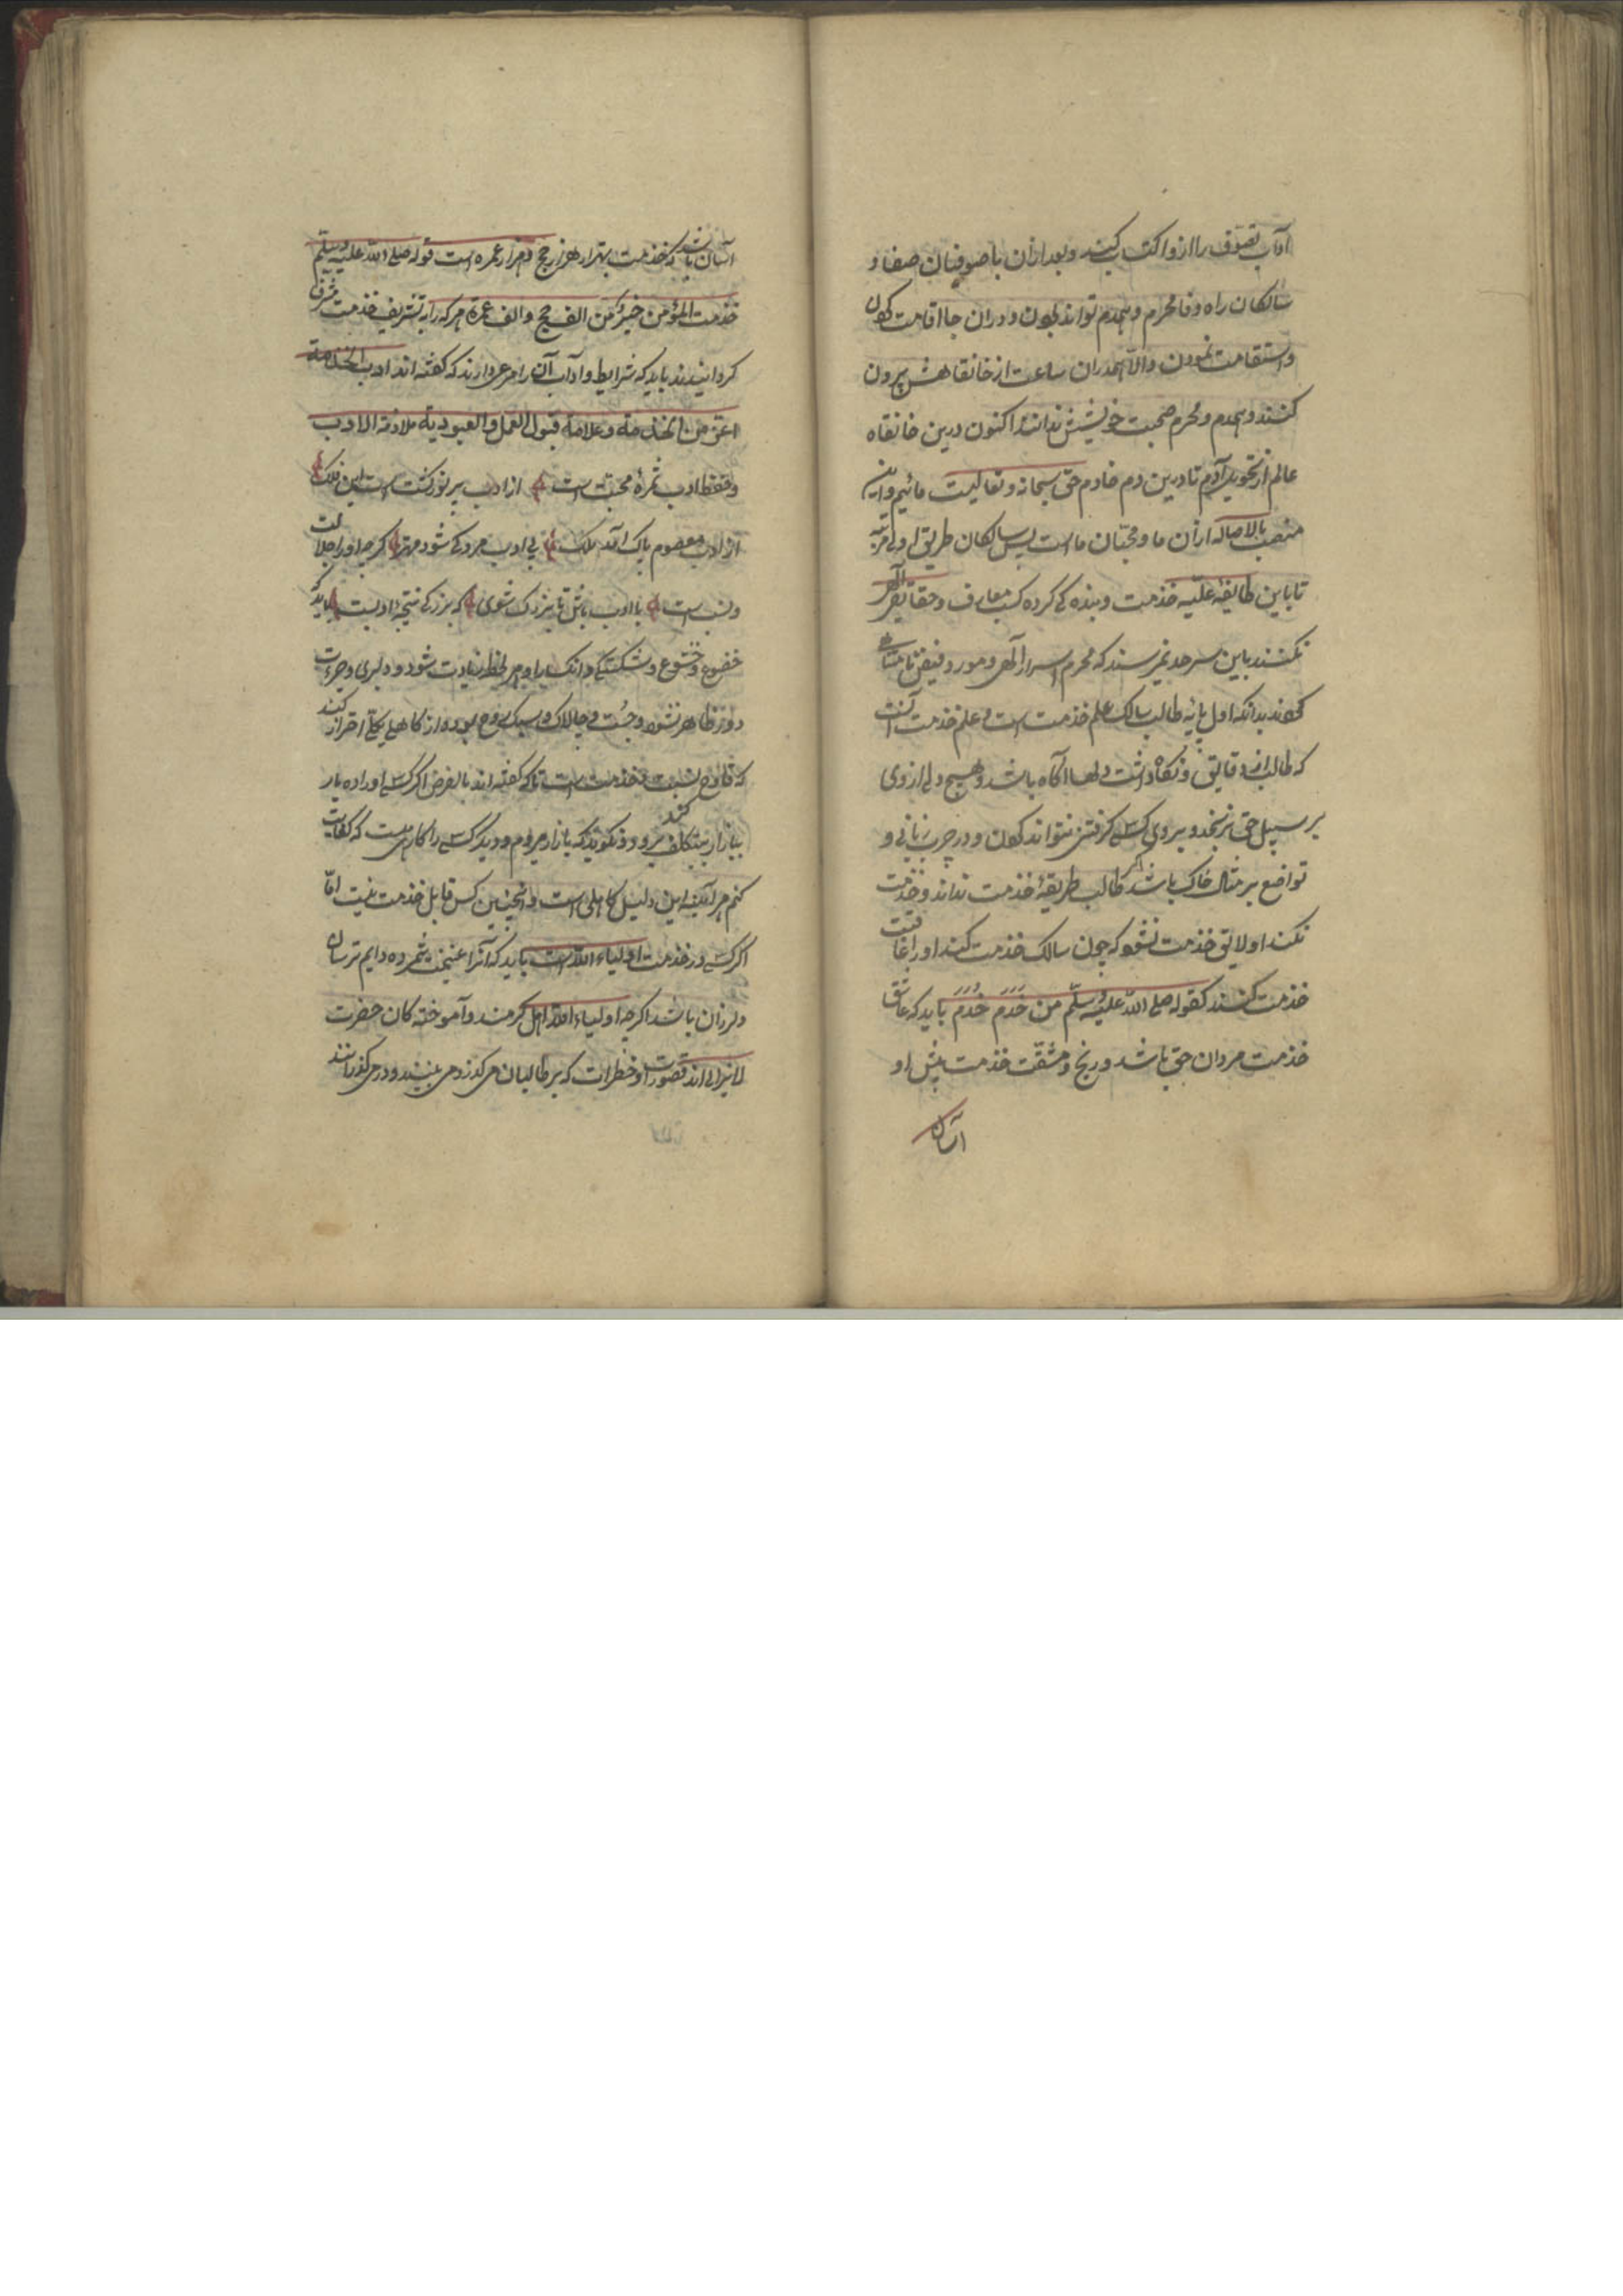 آداب تصوف را ازو اکتساب کنند و بعد ازان با صوفیان صفا و
سالکان راه وفا محرم و همدم تواند بودن و دران جا اقامت کردن
و استقامت نمودن و الا همدران ساعت از خانقاهش بیرون
کنند و همدم و محرم صحبت خویشش ندانند اکنون درین خانقاه
عالم از آدم تا درین دم خادم حق سبحانه و تعالیست مائیم و این
منصب بالاصاله ازان ما و محبان ماست پس سالکان طریق اولی مرتبه
تا باین طایفه علیه خدمت و بنده کی کرده کسب معارف و حقایق الهی
نکنند باین سرحد نمیرسند که محرم اسرار الهی و مورد فیض نامتناهی
کردند بدانکه اول پایه طالب سالک علم خدمت است و علم خدمت آنست
که طالب از دقایق و نکاه داشت دلها آکاه باشد و هیچ دلی از وی
بر سبیل حق نرنجد و بر وی کسی کرفتی نتواند کردن و در چرب زبانی و
تواضع بر مثال خاک باشد اگر طالب طریقه خدمت نداند و خدمت
نکند او لایق خدمت نشود که چون سالک خدمت کند او را عاقبت
خدمت کنند کقوله صلی الله علیه وسلم من خدم خدم باید که عاشق
خدمت مردان حق باشد و رنج و مشقت خدمت پیش او
آسان
آسان باشد که خدمت بهتر از هزار حج و هزار عمره است قوله صلی الله علیه وسلم
خدمت المؤمن خیر من الف حج و الف عمرة هر که را به تشریف خدمت مشرف
کردانیدند باید که شرایط و آداب آن را مرعی دارند که کفته اند ادب الخدمة
اعز من الخدمة و علامة قبول العمل و العبودیة ملازمة الادب
و فقط ادب ثمره محبت است از ادب پر نور کشت است این فلک
از ادب معصوم پاک آمد ملک بی ادب مرد کی شود مهتر کرچه او را جلالت
و نسب است با ادب باش تا بزرک شوی که بزرکی نتیجه ادبست باید که
خضوع و خشوع و شکستکی و انکسار او هر لحظه زیادت شود و دلیری و جرءت
دروی ظاهر نشود و چست و چالاک و سبک روح بوده از کاهلی بکلی احتراز کند
که قادح نسبت خدمت است تا که کفته اند بالفرض اکر کسی او را ده بار
ببازار بتکلف برود و نکوید که بازار میروم و دیکر کسی را کاری هست که کفایت کند
کنم هر آینه این دلیل کاهلی است و اینچنین کس قابل خدمت نیست اما
اکر کسی در خدمت اولیاء الله است باید که آنرا غنیمت شمرده دایم ترسان
و لرزان باشد اکرچه اولیاء الله اهل کرمند و آموخته کان حضرت
لایزالی اند قصورات و خطرات که بر طالبان می کذرد می بینند و در می کذرانند